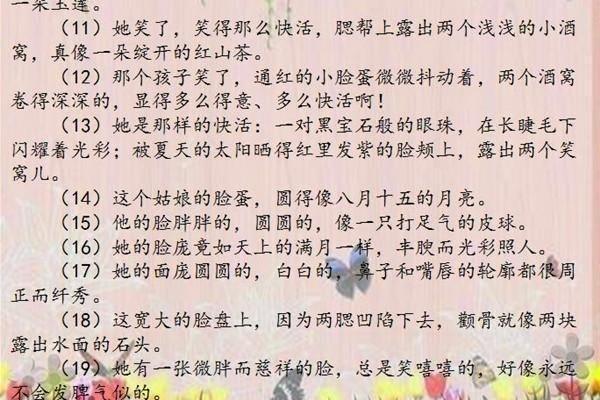 一朵玉莲。
（11）她笑了，笑得那么快活，腮帮上露出两个浅浅的小酒
窝，真像一朵绽开的红山茶。
（12）那个孩子笑了，通红的小脸蛋微微抖动着，两个酒窝
卷得深深的，显得多么得意、多么快活啊！
（13）她是那样的快活：一对黑宝石般的眼珠，在长睫毛下
闪耀着光彩；被夏天的太阳晒得红里发紫的脸颊上，露出两个笑
窝儿。
（14）这个姑娘的脸蛋，圆得像八月十五的月亮。
（15）他的脸胖胖的，圆圆的，像一只打足气的皮球。
（16）她的脸庞竟如天上的满月一样，丰腴而光彩照人。
（17）她的面庞圆圆的，白白的，鼻子和嘴唇的轮廓都很周
正而纤秀。
（18）这宽大的脸盘上，因为两腮凹陷下去，颧骨就像两块
露出水面的石头。
（19）她有一张微胖而慈祥的脸，总是笑嘻嘻的，好像永远
不会发脾气似的。